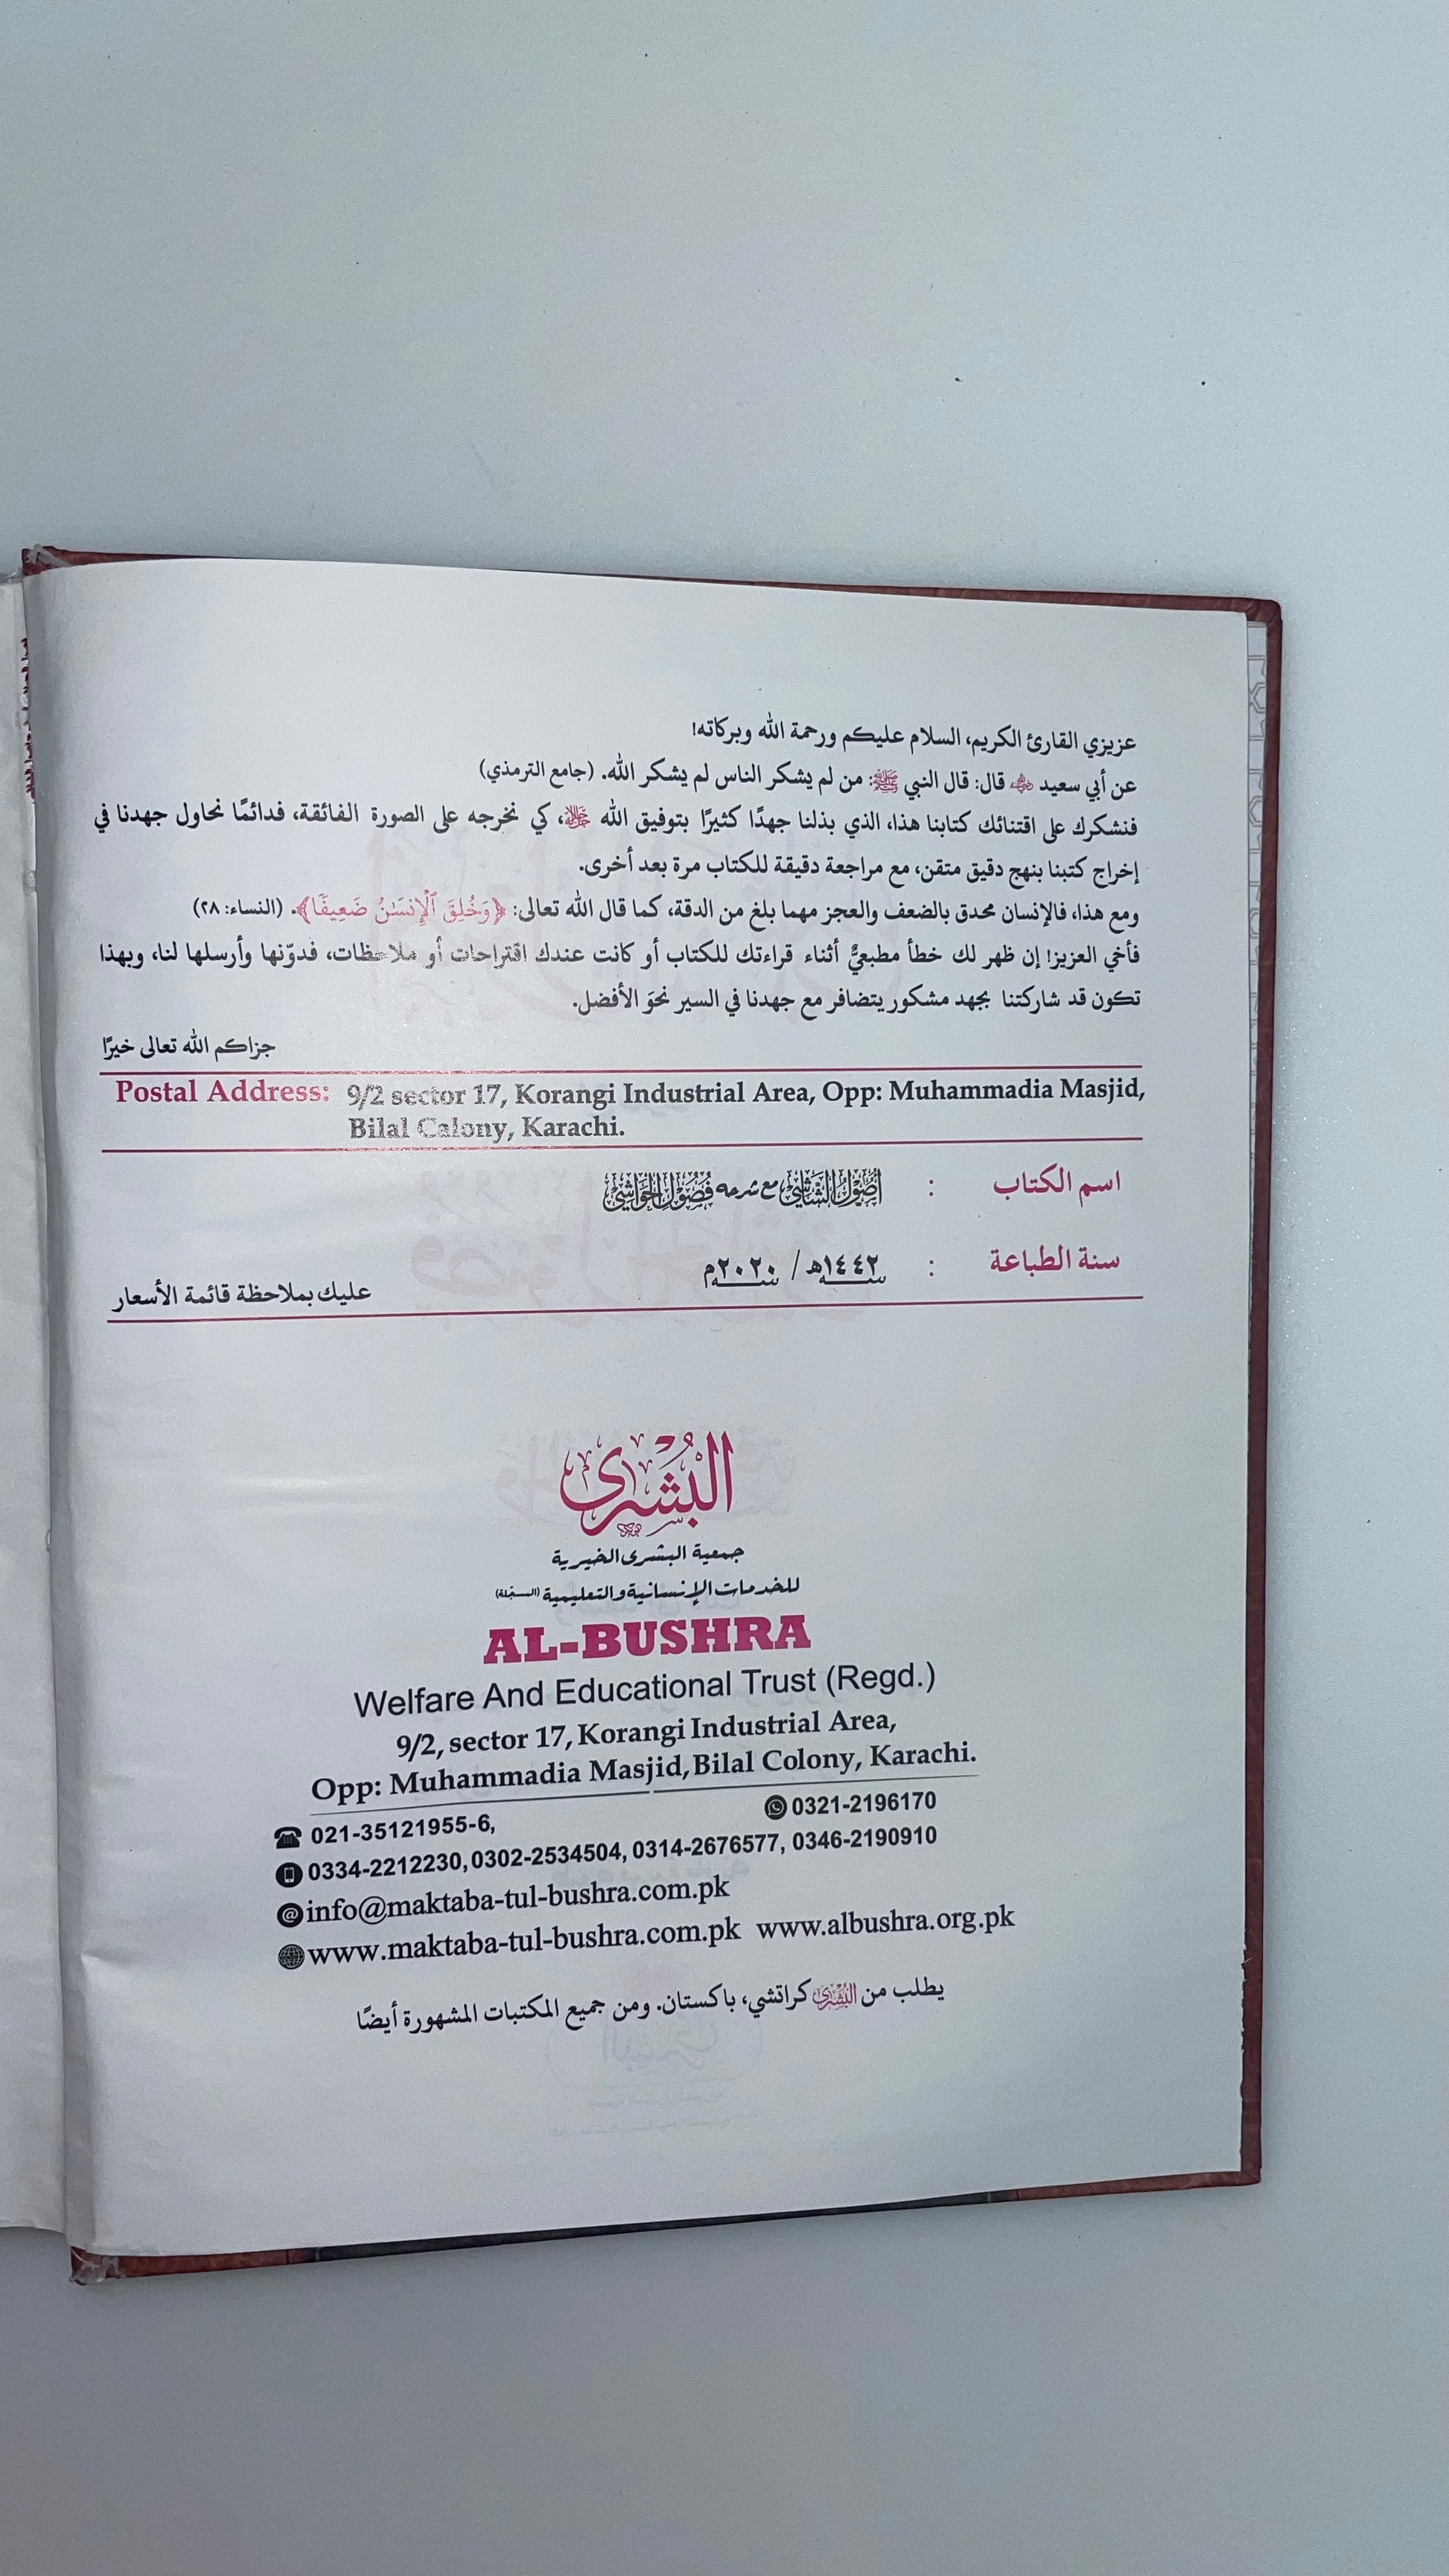 عزيزي القارئ الكريم، السلام عليكم ورحمة الله وبركاته!
عن أبي سعيد ﷺ قال: قال النبي ﷺ: من لم يشكر الناس لم يشكر الله. (جامع الترمذي)
فنشكرك على اقتنائك كتابنا هذا، الذي بذلنا جهدًا كثيرًا بتوفيق الله ﷻ، كي نخرجه على الصورة الفائقة، فدائمًا نحاول جهدنا في
إخراج كتبنا بنهج دقيق متقن، مع مراجعة دقيقة للكتاب مرة بعد أخرى.
ومع هذا، فالإنسان محدق بالضعف والعجز مهما بلغ من الدقة، كما قال الله تعالى: ﴿وَخُلِقَ ٱلْإِنسَٰنُ ضَعِيفًا﴾. (النساء: ٢٨)
فأخي العزيز! إن ظهر لك خطأ مطبعيٌّ أثناء قراءتك للكتاب أو كانت عندك اقتراحات أو ملاحظات، فدوّنها وأرسلها لنا، وبهذا
تكون قد شاركتنا بجهد مشكور يتضافر مع جهدنا في السير نحوَ الأفضل.
جزاكم الله تعالى خيرًا
Postal Address: 9/2 sector 17, Korangi Industrial Area, Opp: Muhammadia Masjid,
Bilal Calony, Karachi.
اسم الكتاب : أصول الشاشي مع شرحه فصول الحواشي
سنة الطباعة : ١٤٤٢ھ / ٢٠٢٠م
عليك بملاحظة قائمة الأسعار
البُشرى
جمعية البشرى الخيرية
للخدمات الإنسانية والتعليمية (المسجّلة)
AL-BUSHRA
Welfare And Educational Trust (Regd.)
9/2, sector 17, Korangi Industrial Area,
Opp: Muhammadia Masjid, Bilal Colony, Karachi.
021-35121955-6, 0321-2196170
0334-2212230, 0302-2534504, 0314-2676577, 0346-2190910
info@maktaba-tul-bushra.com.pk
www.maktaba-tul-bushra.com.pk www.albushra.org.pk
يطلب من البُشرى كراتشي، باكستان. ومن جميع المكتبات المشهورة أيضًا